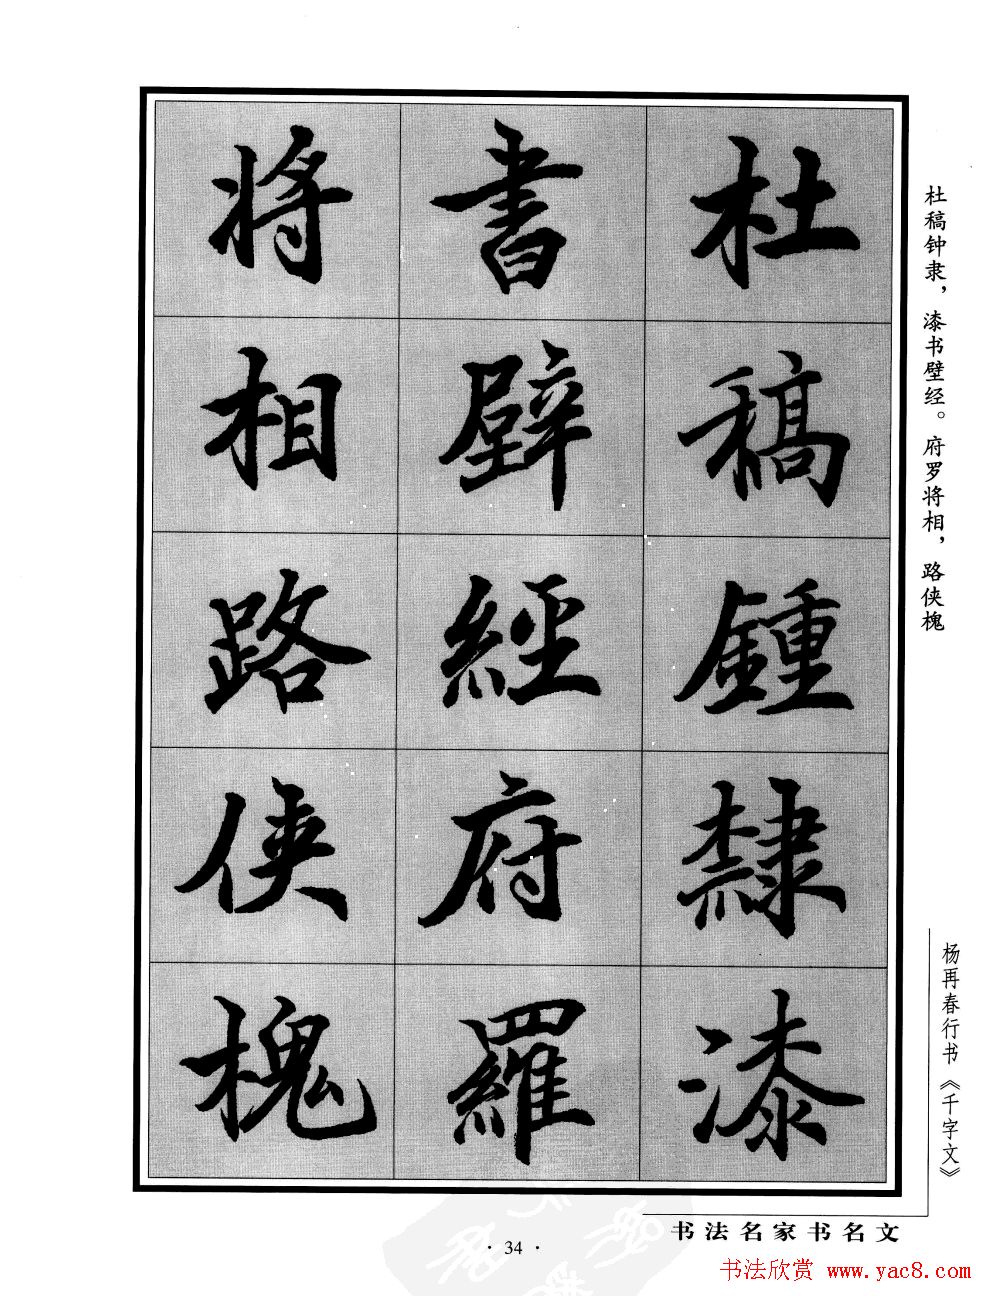 杜稿鍾隸漆
書壁經府羅
將相路俠槐
杜稿钟隶，漆书壁经。府罗将相，路侠槐
杨再春行书《千字文》
书法名家书名文
· 34 ·
书法欣赏 www.yac8.com